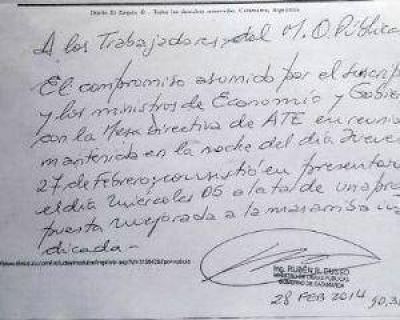 Diario El Esquiú © - Todos los derechos reservados. Catamarca, Argentina
A los Trabajadores del M.O.Públicas
El compromiso asumido por el suscripto
y los ministros de Economía y Gobier
con la Mesa Directiva de ATE en reunión
mantenida en la noche del día Jueves
27 de Febrero; consistió en presentar
el día miércoles 05 a la tal de una pro
puesta mejorada a la mas arriba in
dicada -
Ing. RUBÉN R. DUSSO
MINISTRO DE OBRAS PÚBLICAS
GOBIERNO DE CATAMARCA
28 FEB 2014